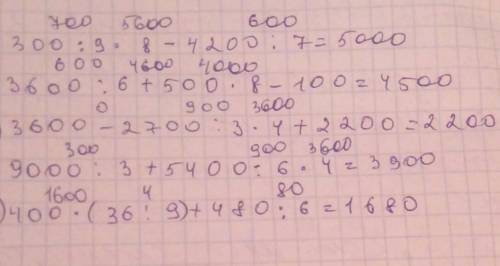 700 5600 600
300 : 9 · 8 - 4200 : 7 = 5000
600 4600 4000
3600 : 6 + 500 · 8 - 100 = 4500
0 900 3600
) 3600 - 2700 : 3 · 4 + 2200 = 2200
300 900 3600
9000 : 3 + 5400 : 6 · 4 = 3900
1600 4 80
) 400 · (36 : 9) + 480 : 6 = 1680